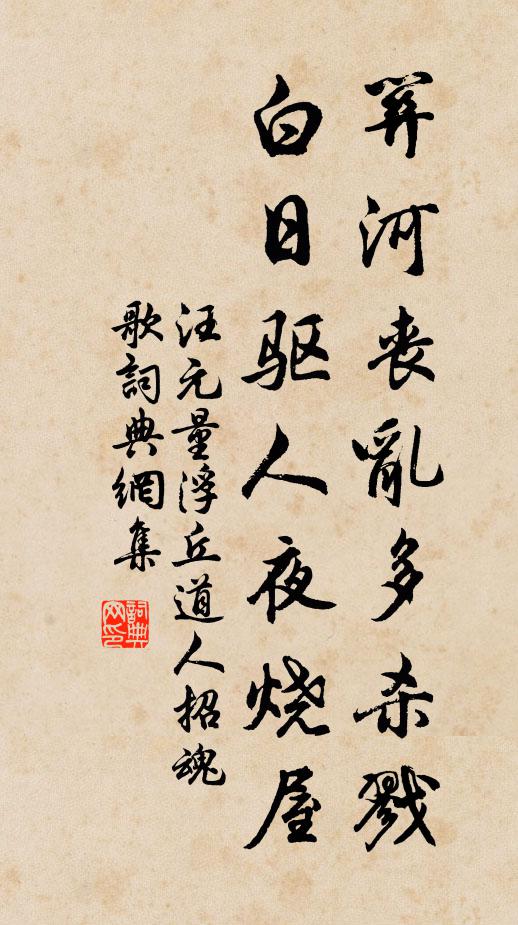 关河丧亂多杀戮
白日驱人夜烧屋
汪元量浮丘道人招魂
歌詞典網集
詞典网印